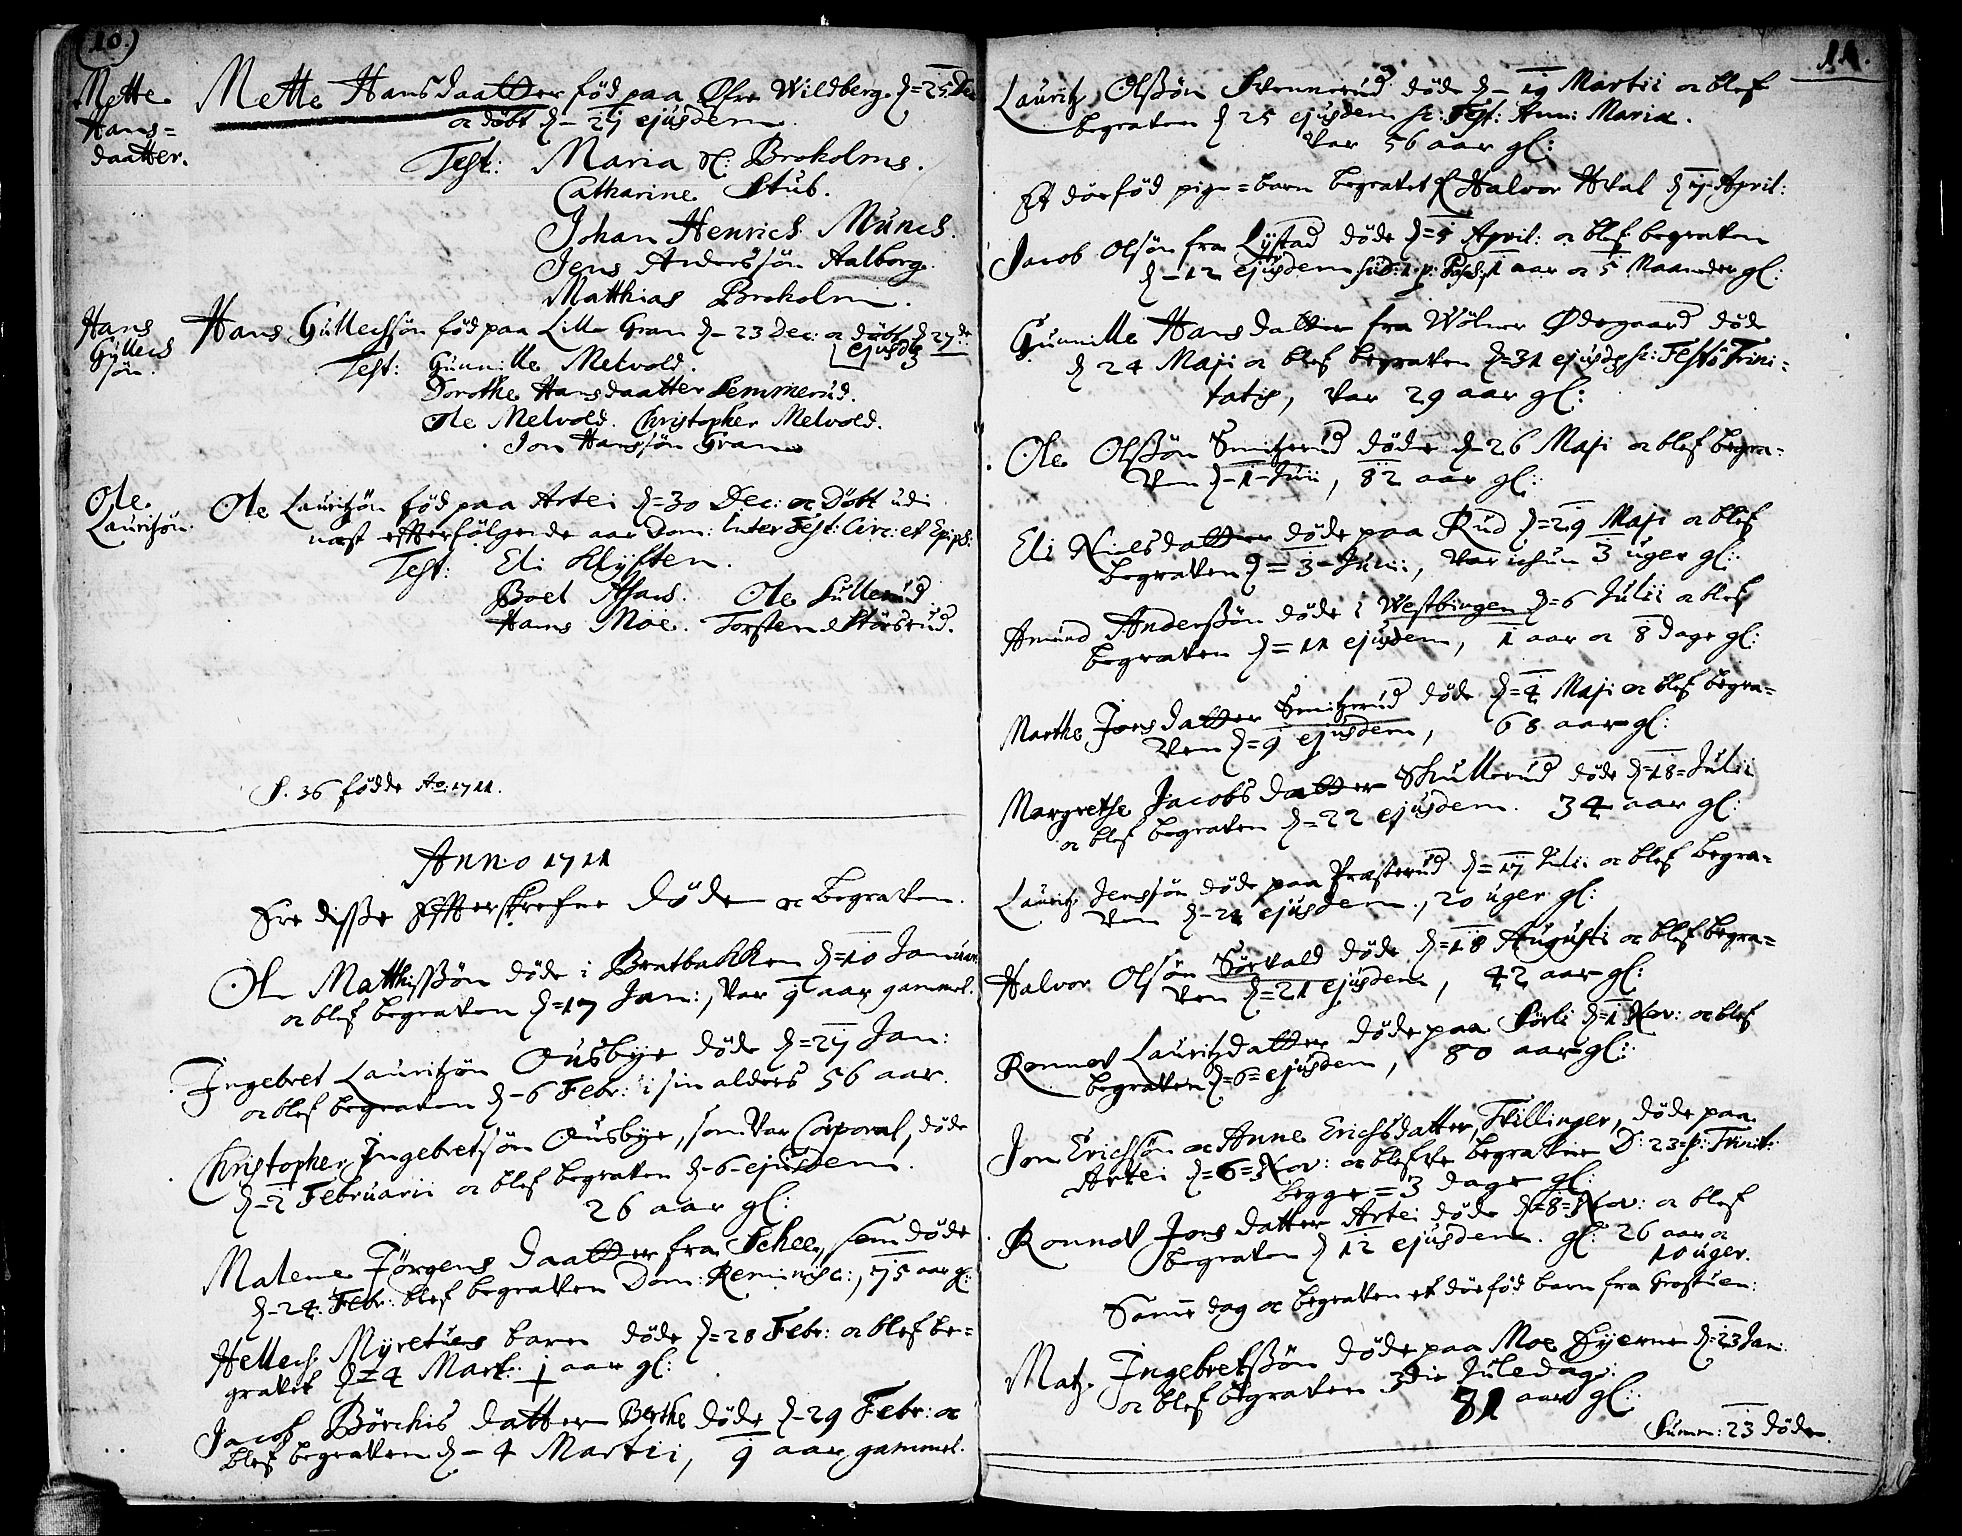 10.)
Mette
Hans=
daatter.
Mette Hansdaatter fød paa Øfre Wildberg d=25 Dec
oc døbt d-27 ejusdem.
Test: Maria Sl: Brokolms.
Catharine Stub.
Johan Henrich Munch.
Jens Anderssøn Aalborg.
Matthias Brokolm.
Hans
Gullechs
søn.
Hans Gullechsøn fød paa Lille Gran d- 23 Dec: oc døbt d 27de
ejusd
Test: Gunnille Melvold.
Dorothe Hansdaatter Semmerud.
Ole Melvold. Christopher Melvold.
Jon Hanssøn Gran
Ole
Lauritzøn.
Ole Lauritzøn fød paa Artei d=30 Dec: oc Døbt udi
næst effterfølgende aar Dom: inter Fest: Circ: et Epiph:
Test: Eli Klyften.
Boel Aas. Ole Sullerud
Hans Moe. Torsten Størsrud.
S. 36 fødde Ao: 1711.
Anno 1711
Ere disse Effterskrefne døde oc begraven.
Ole Matthissøn døde i Bratbakken d=10 Januarii
oc blef begraven d=17 Jan:, var 9 aar gammel.
Ingebret Lauritzøn Ousbye døde d=27 Jan:
oc blef begraven d-6 Febr: i sin alders 56 aar.
Christopher Ingebretsøn Ousbye, som var Corporal, døde
d-2 Februarii oc blef begraven d-6-ejusdem.
26 aar gl:
Malene Jørgens daatter fra Schee, som døde
d-24 Febr: blef begraven Dom: Reminisc:, 75 aar gl:
Hellech Myretues barn døde d=28 Febr: oc blef be=
gravet d=4 Mart: 1 aar gl:
Jacob Børchis datter Berthe døde d-29 Febr: oc
blef begraven d-4 Martii, 9 aar gammel.
11.
Lauritz Olssøn Svennerud døde d- 19 Martii oc blef
begraven d 25 ejusdem sc: Fest: Ann: Mariæ.
var 56 aar gl:
Et døefød pige=barn begravet f Halvor Hval d 7 April:
Jacob Olsøn fra Lystad døde d=5 April: oc blef begraven
d-12 ejusdem sc: D: 1 p: Pasc: 1 aar oc 5 Maander gl:
Gunnille Hansdatter fra Wølner Ødegaard døde
d 24 Maji oc blef begraven d=31 ejusd sc: Festo Trini=
tatis, var 29 aar gl:
Ole Olssøn Smitzerud døde d-26 Maji oc blef begra=
ven d-1-Juni, 82 aar gl:
Eli Nielsdatter døde paa Rud d=29 Maji oc blef
begraven d=3-Junii, var ichun 3 uger gl:
Amund Anderssøn døde i Westbingen d=6 Julii oc blef
begraven d=11 ejusdem, 1 aar oc 8 dage gl:
Marthe Jonsdatter Smitzerud døde d=4 Maji oc blef begra=
ven d=9 ejusdem, 68 aar gl:
Margrethe Jacobsdatter Skullerud døde d=18=Julii
oc blef begraven d=22 ejusdem. 34 aar gl:
Lauritz Jenssøn døde paa Præsterud d=17 Julii oc blef begra=
ven d-21 ejusdem, 20 uger gl:
Halvor Olsøn Sørvald døde d=18 Augusti oc blef begra=
ven d=21 ejusdem, 42 aar gl:
Ronnov Lauritzdatter døde paa Sørli d=1 Nov: oc blef
begraven d=6=ejusdem, 80 aar gl:
Jon Erichsøn oc Anne Erichsdatter, Tvillinger, døde paa
Artei d=6=Nov: oc blefve begravne D: 23 p: Trinit:
begge=3 dage gl:
Ronnov Jonsdatter Artei døde d=8=Nov: oc blef
begraven d 12 ejusdem. gl: 26 aar oc
10 uger.
Same dag oc begraven et døefød barn fra Grostuen:
Matz Ingebretssøn døde paa Moe Eyerne d=23 Jan:
oc blef begraven 3die Juledag:
81 aar gl:
Summ: 23 døde.